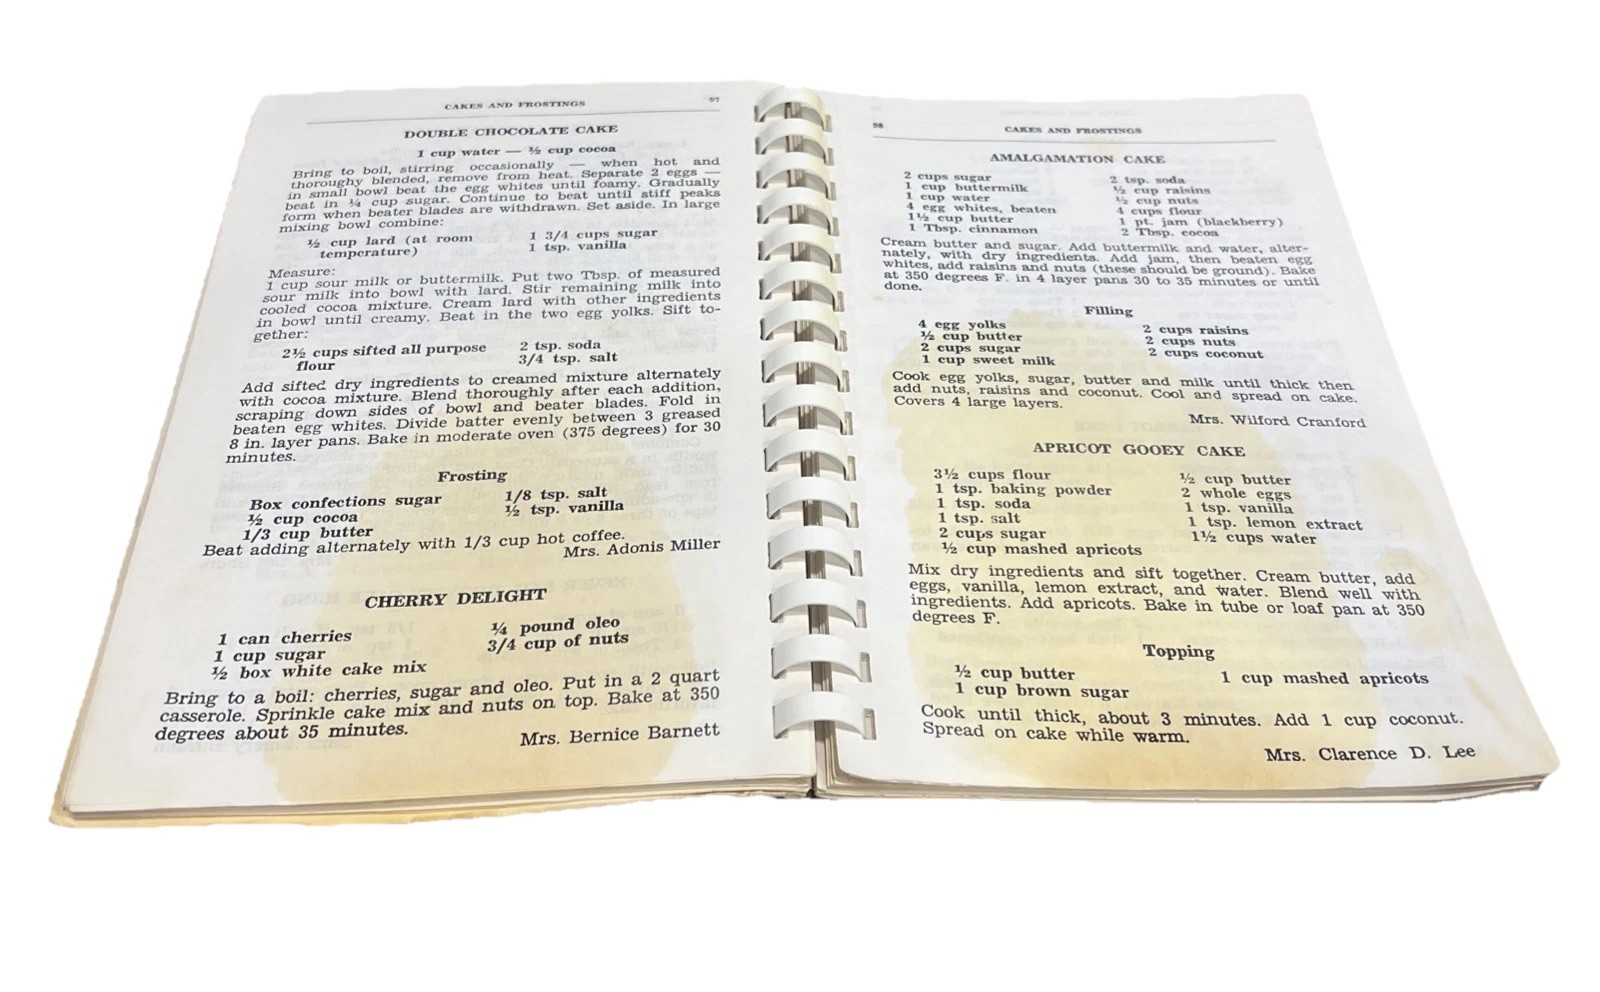 CAKES AND FROSTINGS 97
DOUBLE CHOCOLATE CAKE
1 cup water — ½ cup cocoa
Bring to boil, stirring occasionally — when hot and
thoroughy blended, remove from heat. Separate 2 eggs —
in small bowl beat the egg whites until foamy. Gradually
beat in ¼ cup sugar. Continue to beat until stiff peaks
form when beater blades are withdrawn. Set aside. In large
mixing bowl combine:
½ cup lard (at room
temperature)
1 3/4 cups sugar
1 tsp. vanilla
Measure:
1 cup sour milk or buttermilk. Put two Tbsp. of measured
sour milk into bowl with lard. Stir remaining milk into
cooled cocoa mixture. Cream lard with other ingredients
in bowl until creamy. Beat in the two egg yolks. Sift to-
gether:
2½ cups sifted all purpose
flour
2 tsp. soda
3/4 tsp. salt
Add sifted dry ingredients to creamed mixture alternately
with cocoa mixture. Blend thoroughly after each addition,
scraping down sides of bowl and beater blades. Fold in
beaten egg whites. Divide batter evenly between 3 greased
8 in. layer pans. Bake in moderate oven (375 degrees) for 30
minutes.
Frosting
Box confections sugar
½ cup cocoa
1/3 cup butter
1/8 tsp. salt
½ tsp. vanilla
Beat adding alternately with 1/3 cup hot coffee.
Mrs. Adonis Miller
CHERRY DELIGHT
1 can cherries
1 cup sugar
½ box white cake mix
¼ pound oleo
3/4 cup of nuts
Bring to a boil: cherries, sugar and oleo. Put in a 2 quart
casserole. Sprinkle cake mix and nuts on top. Bake at 350
degrees about 35 minutes.
Mrs. Bernice Barnett
98 CAKES AND FROSTINGS
AMALGAMATION CAKE
2 cups sugar
1 cup buttermilk
1 cup water
4 egg whites, beaten
1½ cup butter
1 Tbsp. cinnamon
2 tsp. soda
½ cup raisins
½ cup nuts
4 cups flour
1 pt. jam (blackberry)
2 Tbsp. cocoa
Cream butter and sugar. Add buttermilk and water, alter-
nately, with dry ingredients. Add jam, then beaten egg
whites, add raisins and nuts (these should be ground). Bake
at 350 degrees F. in 4 layer pans 30 to 35 minutes or until
done.
Filling
4 egg yolks
½ cup butter
2 cups sugar
1 cup sweet milk
2 cups raisins
2 cups nuts
2 cups coconut
Cook egg yolks, sugar, butter and milk until thick then
add nuts, raisins and coconut. Cool and spread on cake.
Covers 4 large layers.
Mrs. Wilford Cranford
APRICOT GOOEY CAKE
3½ cups flour
1 tsp. baking powder
1 tsp. soda
1 tsp. salt
2 cups sugar
½ cup mashed apricots
½ cup butter
2 whole eggs
1 tsp. vanilla
1 tsp. lemon extract
1½ cups water
Mix dry ingredients and sift together. Cream butter, add
eggs, vanilla, lemon extract, and water. Blend well with
ingredients. Add apricots. Bake in tube or loaf pan at 350
degrees F.
Topping
½ cup butter
1 cup brown sugar
1 cup mashed apricots
Cook until thick, about 3 minutes. Add 1 cup coconut.
Spread on cake while warm.
Mrs. Clarence D. Lee